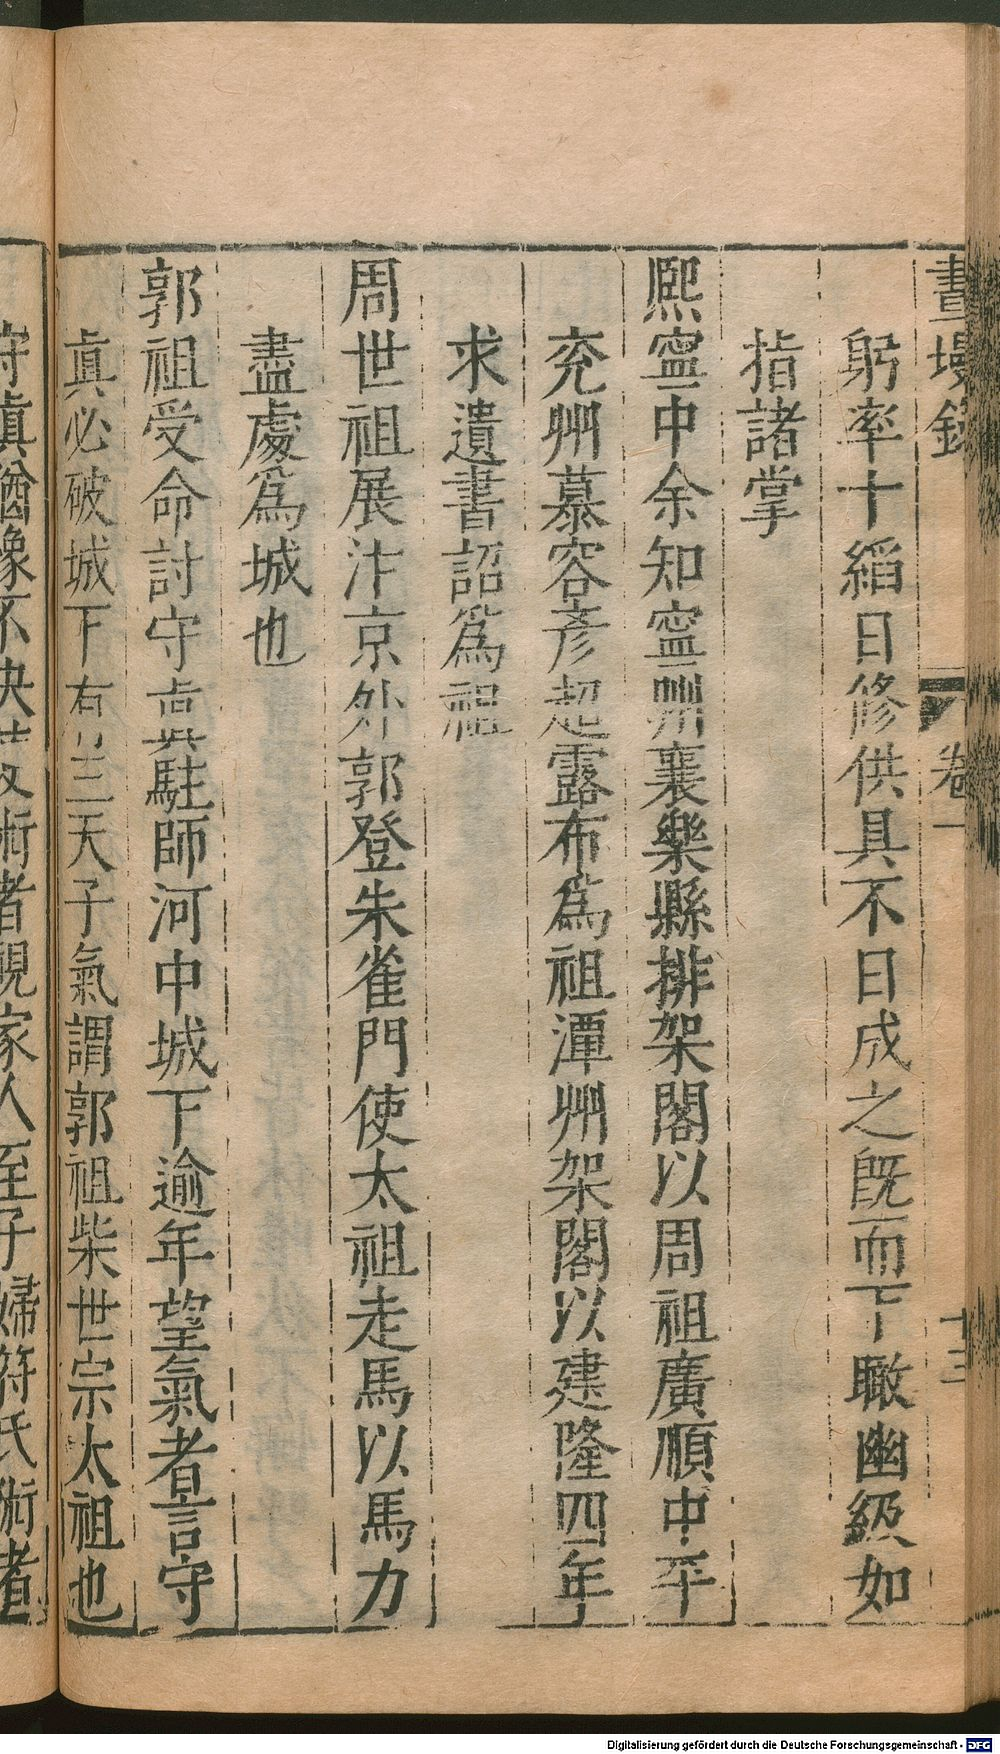 畫墁錄 卷一 十三
躬率十縚日修供具不日成之旣而下瞰幽級如
指諸掌
熙寧中余知寧州襄樂縣排架閣以周祖廣順中平
兖州慕容彥超露布爲祖潭州架閣以建隆四年
求遺書詔爲祖
周世祖展汴京外郭登朱雀門使太祖走馬以馬力
盡處爲城也
郭祖受命討守貞駐師河中城下逾年望氣者言守
眞必破城下有三天子氣謂郭祖柴世宗太祖也
守眞猶豫不決 術者視家人至子婦符氏術者
Digitalisierung gefördert durch die Deutsche Forschungsgemeinschaft - DFG